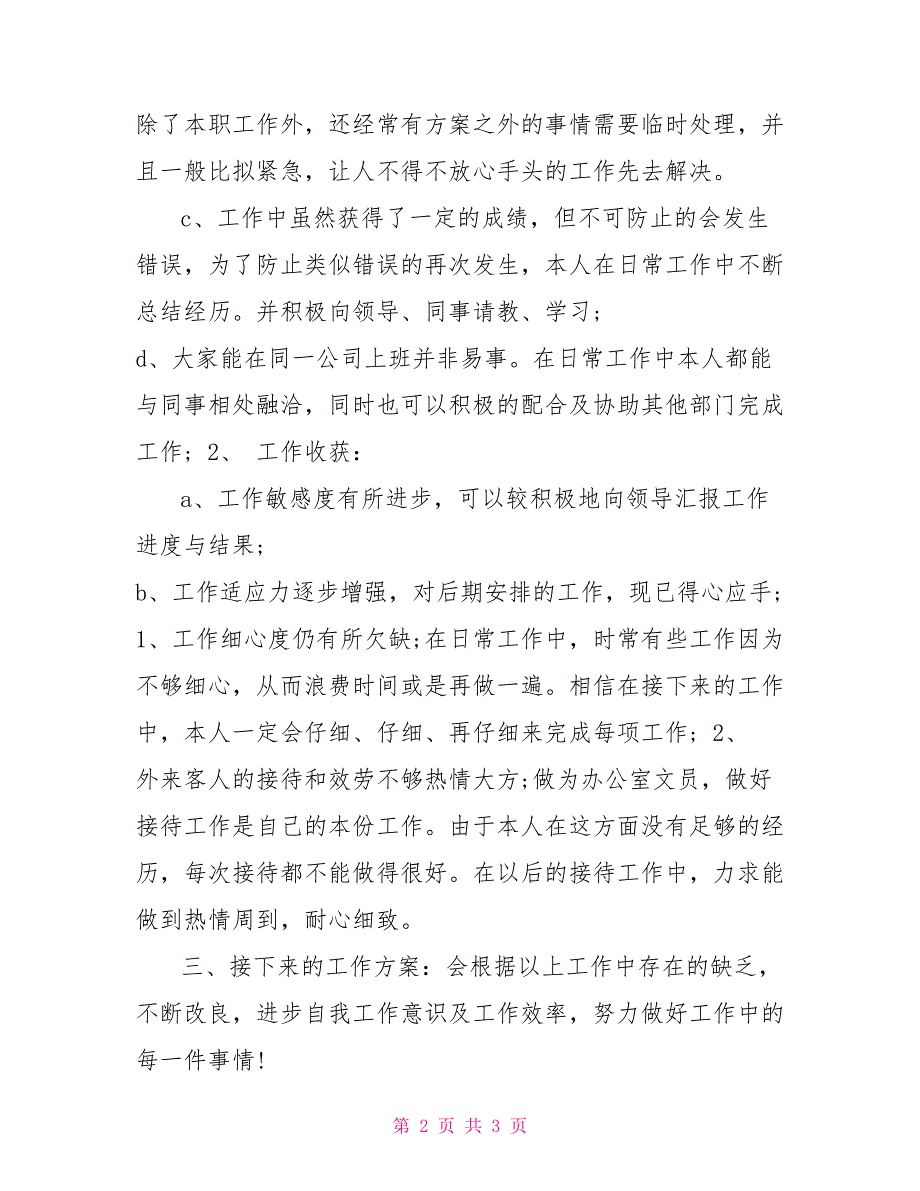 除了本职工作外，还经常有方案之外的事情需要临时处理，并
且一般比拟紧急，让人不得不放心手头的工作先去解决。
c、工作中虽然获得了一定的成绩，但不可防止的会发生
错误，为了防止类似错误的再次发生，本人在日常工作中不断
总结经历。并积极向领导、同事请教、学习;
d、大家能在同一公司上班并非易事。在日常工作中本人都能
与同事相处融洽，同时也可以积极的配合及协助其他部门完成
工作; 2、 工作收获：
a、工作敏感度有所进步，可以较积极地向领导汇报工作
进度与结果;
b、工作适应力逐步增强，对后期安排的工作，现已得心应手;
1、工作细心度仍有所欠缺;在日常工作中，时常有些工作因为
不够细心，从而浪费时间或是再做一遍。相信在接下来的工作
中，本人一定会仔细、仔细、再仔细来完成每项工作; 2、
外来客人的接待和效劳不够热情大方;做为办公室文员，做好
接待工作是自己的本份工作。由于本人在这方面没有足够的经
历，每次接待都不能做得很好。在以后的接待工作中，力求能
做到热情周到，耐心细致。
三、接下来的工作方案：会根据以上工作中存在的缺乏，
不断改良，进步自我工作意识及工作效率，努力做好工作中的
每一件事情!
第 2 页 共 3 页